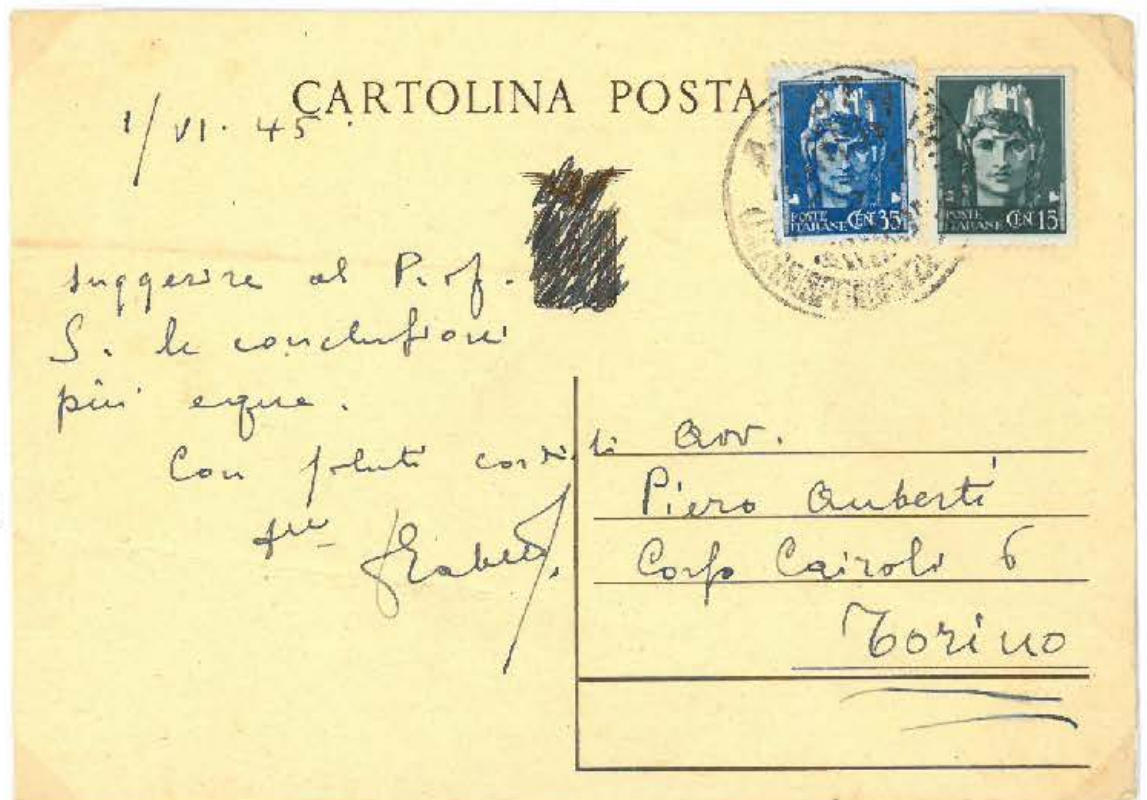 CARTOLINA POSTA
1/VI.45.
POSTE ITALIANE CEN 35
POSTE ITALIANE CEN 15
suggerire al Prof.
S. le conclusioni
più eque.
Con saluti cordiali
suo
Avv.
Piero Auberti
Corso Cairoli 6
Torino